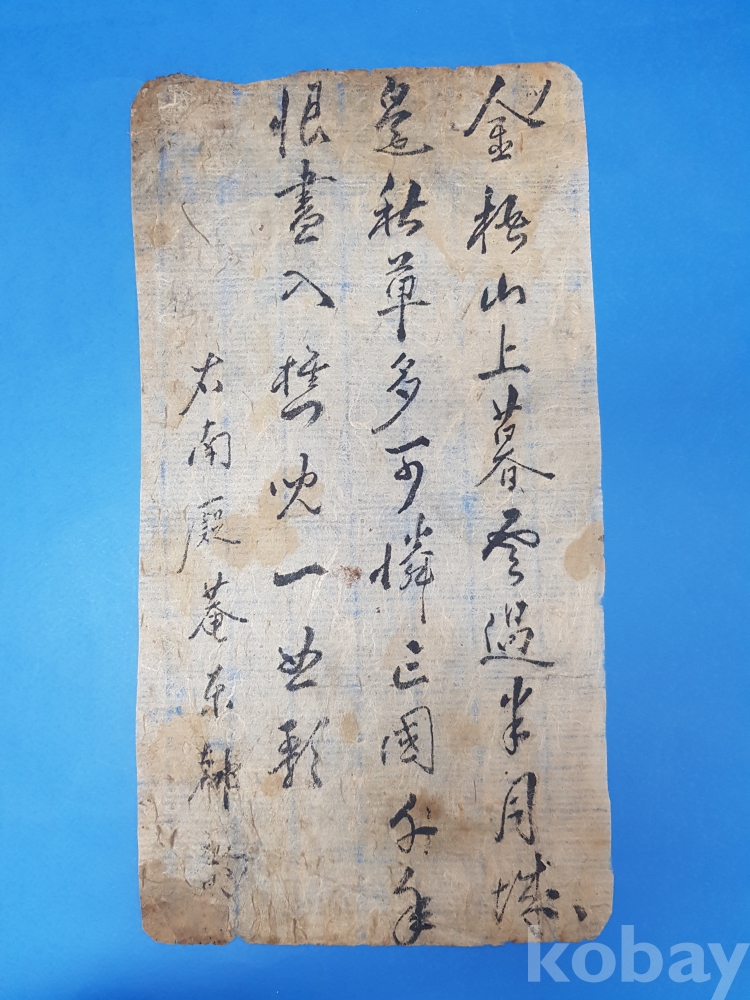 金梧山上暮雲過半月城
邊秋草多可憐亡國千年
恨盡入樵兒一曲歌
右南菴
kobay